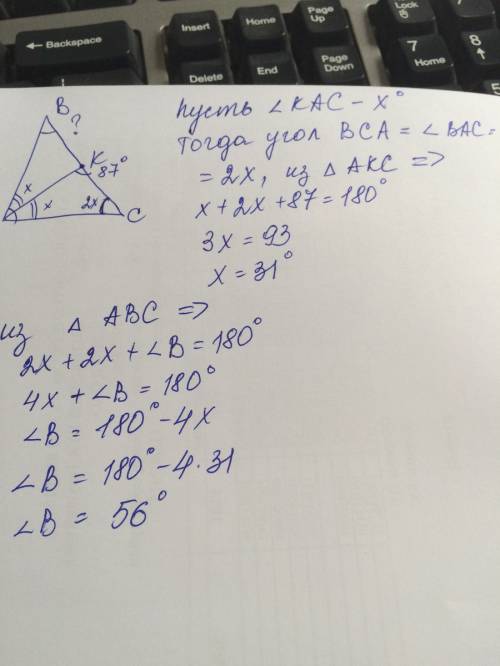 ← Backspace
Insert
Home
Page Up
Delete
End
Page Down
Lock
7
Home
8
B
?
K
87°
x
x
2x
C
пусть ∠KAC - x°
Тогда угол BCA = ∠BAC =
= 2x, из △ AKC =>
x + 2x + 87 = 180°
3x = 93
x = 31°
из △ ABC =>
2x + 2x + ∠B = 180°
4x + ∠B = 180°
∠B = 180° - 4x
∠B = 180° - 4 · 31
∠B = 56°